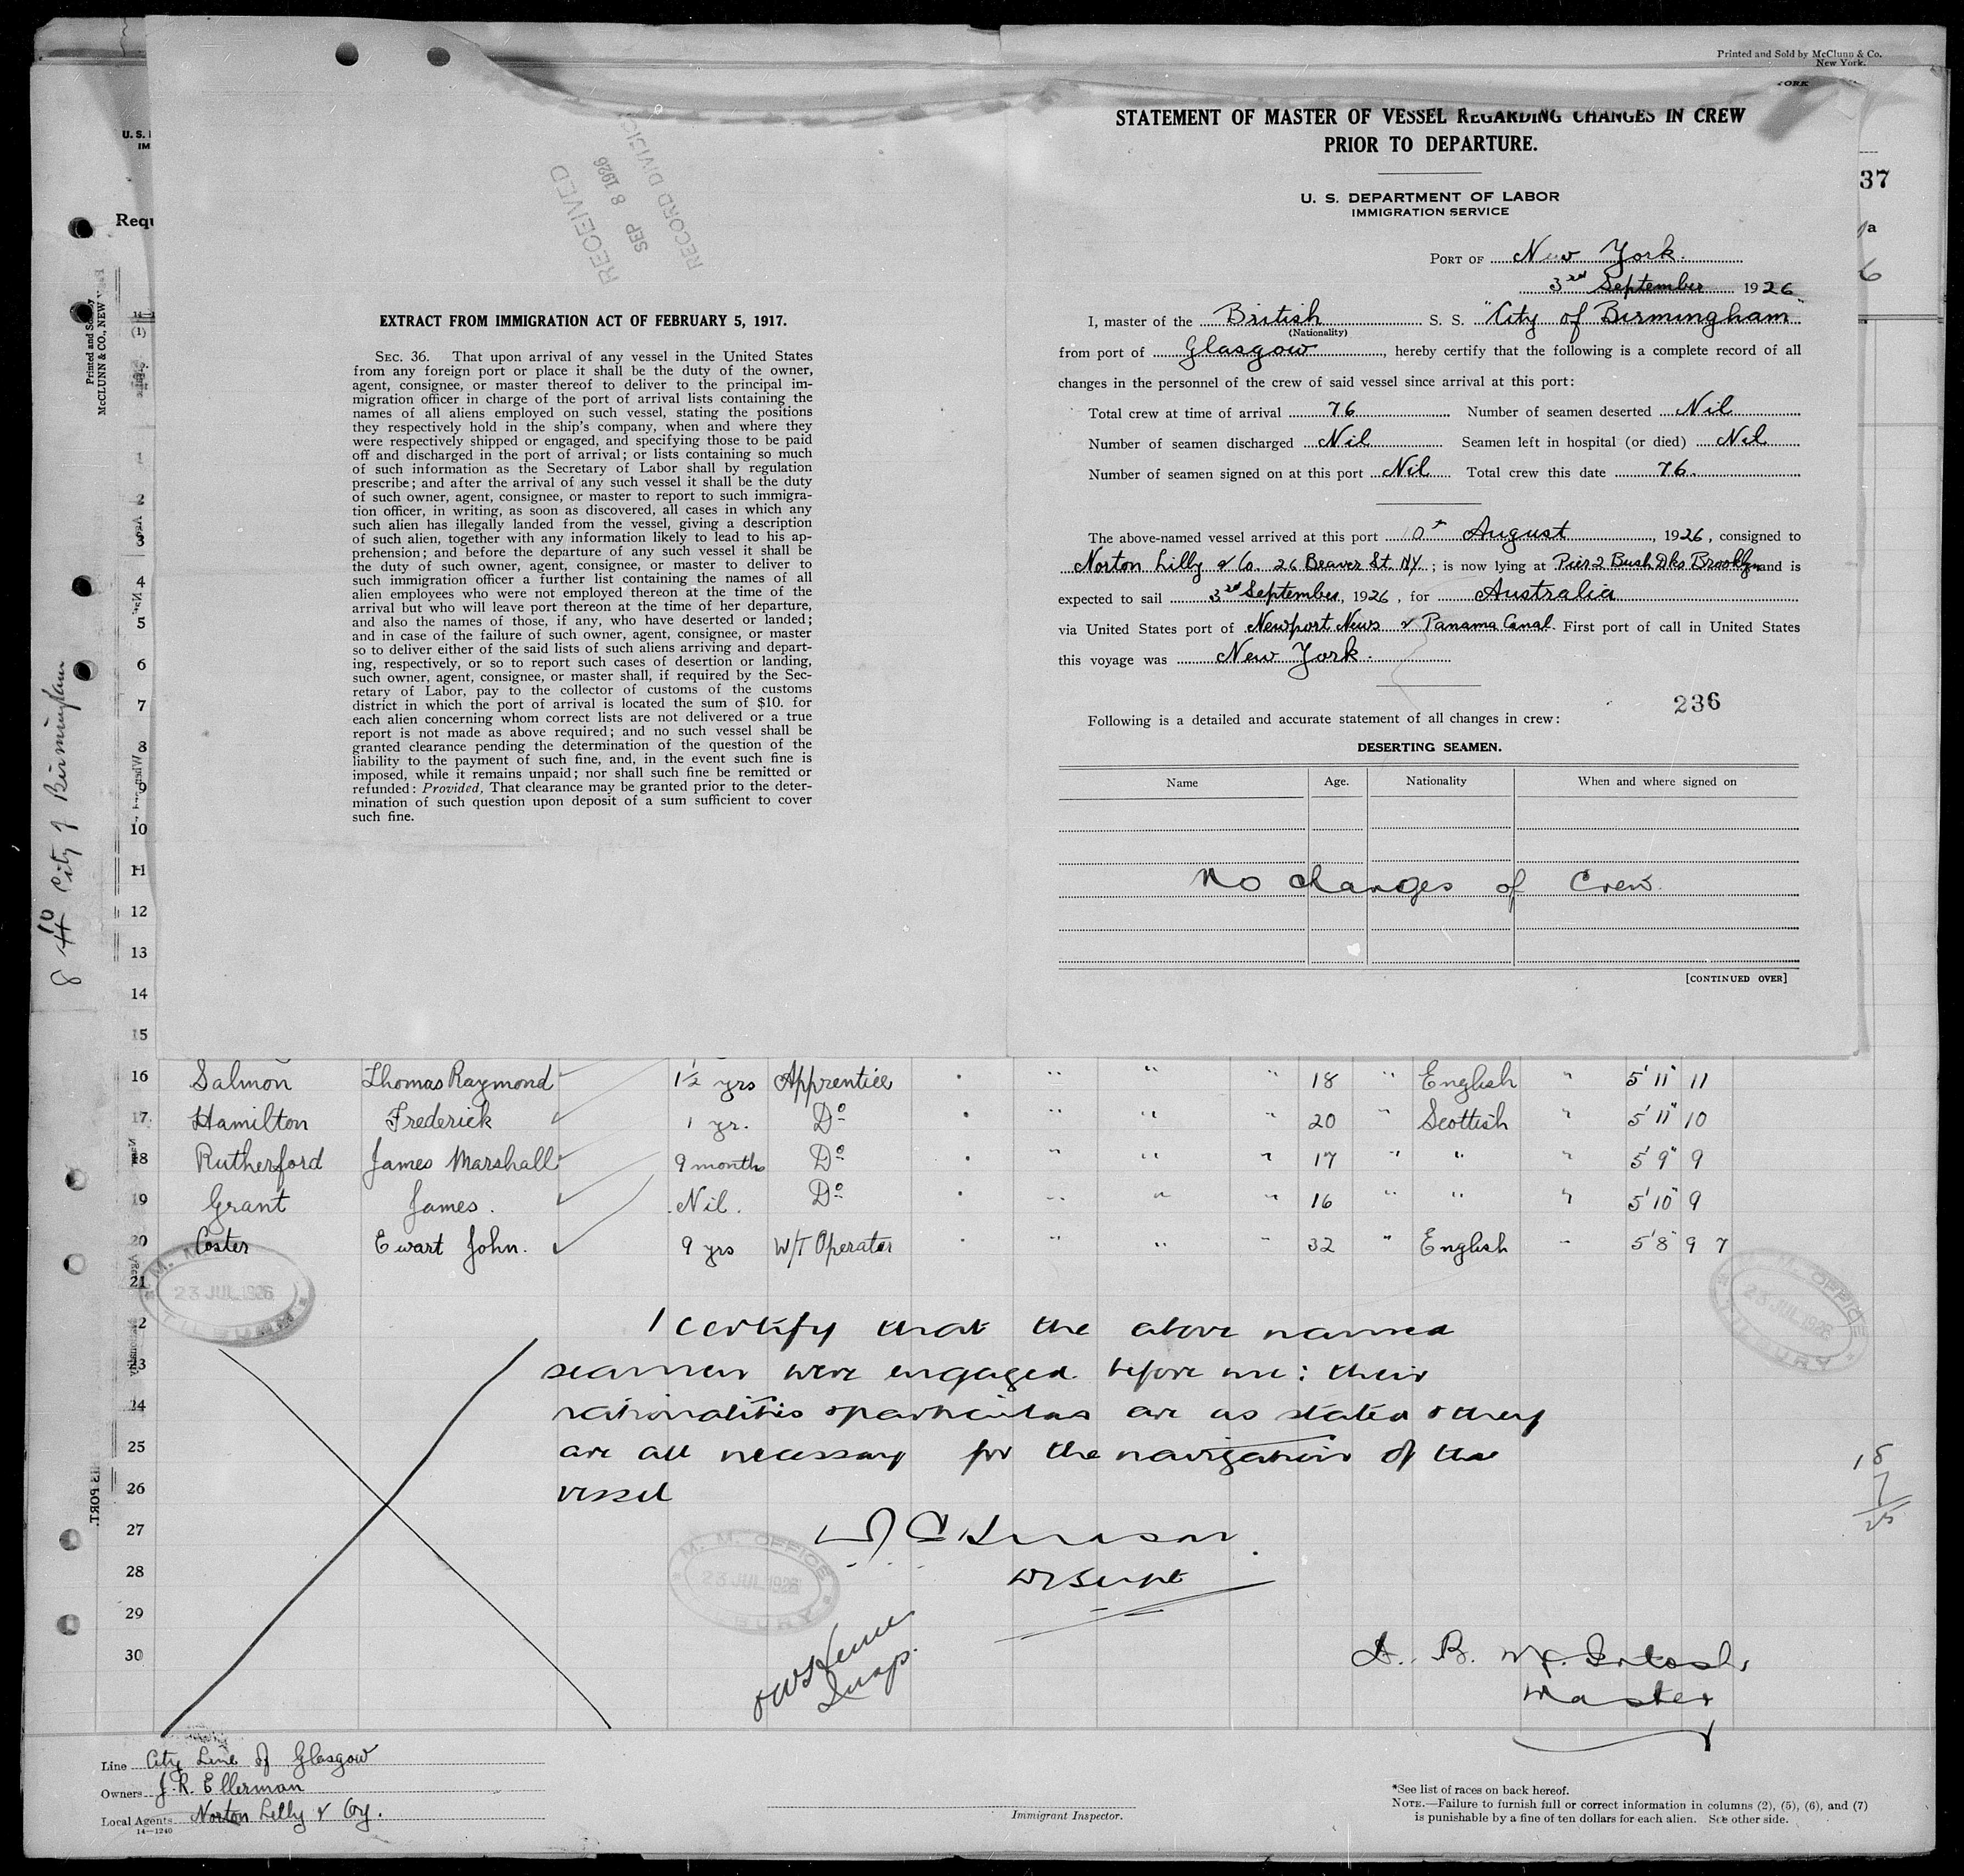 Printed and Sold by McClunn & Co.
New York.
YORK
U. S.
IM
Requ
37
a
6
Printed and Sold by
McCLUNN & CO., NEW Y
8 10 City of Birmingham
RECEIVED
SEP 8 1926
RECORD DIVISIO
EXTRACT FROM IMMIGRATION ACT OF FEBRUARY 5, 1917.
SEC. 36. That upon arrival of any vessel in the United States
from any foreign port or place it shall be the duty of the owner,
agent, consignee, or master thereof to deliver to the principal im-
migration officer in charge of the port of arrival lists containing the
names of all aliens employed on such vessel, stating the positions
they respectively hold in the ship's company, when and where they
were respectively shipped or engaged, and specifying those to be paid
off and discharged in the port of arrival; or lists containing so much
of such information as the Secretary of Labor shall by regulation
prescribe; and after the arrival of any such vessel it shall be the duty
of such owner, agent, consignee, or master to report to such immigra-
tion officer, in writing, as soon as discovered, all cases in which any
such alien has illegally landed from the vessel, giving a description
of such alien, together with any information likely to lead to his ap-
prehension; and before the departure of any such vessel it shall be
the duty of such owner, agent, consignee, or master to deliver to
such immigration officer a further list containing the names of all
alien employees who were not employed thereon at the time of the
arrival but who will leave port thereon at the time of her departure,
and also the names of those, if any, who have deserted or landed;
and in case of the failure of such owner, agent, consignee, or master
so to deliver either of the said lists of such aliens arriving and depart-
ing, respectively, or so to report such cases of desertion or landing,
such owner, agent, consignee, or master shall, if required by the Sec-
retary of Labor, pay to the collector of customs of the customs
district in which the port of arrival is located the sum of $10. for
each alien concerning whom correct lists are not delivered or a true
report is not made as above required; and no such vessel shall be
granted clearance pending the determination of the question of the
liability to the payment of such fine, and, in the event such fine is
imposed, while it remains unpaid; nor shall such fine be remitted or
refunded: Provided, That clearance may be granted prior to the deter-
mination of such question upon deposit of a sum sufficient to cover
such fine.
STATEMENT OF MASTER OF VESSEL REGARDING CHANGES IN CREW
PRIOR TO DEPARTURE.
U. S. DEPARTMENT OF LABOR
IMMIGRATION SERVICE
PORT OF New York.
3rd September 1926
I, master of the British S. S. "City of Birmingham"
(Nationality)
from port of Glasgow, hereby certify that the following is a complete record of all
changes in the personnel of the crew of said vessel since arrival at this port:
Total crew at time of arrival 76 Number of seamen deserted Nil
Number of seamen discharged Nil Seamen left in hospital (or died) Nil
Number of seamen signed on at this port Nil Total crew this date 76.
The above-named vessel arrived at this port 10th August, 1926, consigned to
Norton Lilly & Co. 26 Beaver St. NY.; is now lying at Pier 2 Bush Dks Brooklyn and is
expected to sail 3rd September, 1926, for Australia
via United States port of Newport News & Panama Canal. First port of call in United States
this voyage was New York.
236
Following is a detailed and accurate statement of all changes in crew:
DESERTING SEAMEN.
Name Age. Nationality When and where signed on
No changes of Crew
[CONTINUED OVER]
1
2
3
4
5
6
7
8
9
10
11
12
13
14
15
16 Salmon Thomas Raymond 1½ yrs Apprentice " " " 18 " English " 5' 11" 11
17 Hamilton Frederick 1 yr. Do " " " 20 " Scottish " 5' 11" 10
18 Rutherford James Marshall 9 months Do " " " 17 " " " 5' 9" 9
19 Grant James. Nil. Do " " " 16 " " " 5' 10" 9
20 Coster Ewart John. 9 yrs W/T Operator " " " 32 " English " 5' 8" 9 7
21
M. M. OFFICE
23 JUL 1926
TILBURY
M. M. OFFICE
23 JUL 1926
TILBURY
22
I certify that the above named
23
seamen were engaged before me: their
24
nationalities & particulars are as stated & they
25
are all necessary for the navigation of the
26
vessel
27
28
29
30
M. M. OFFICE
23 JUL 1926
TILBURY
18
7
25
Insp.
D. B. McIntosh
Master
HIS PORT.
Line City Line of Glasgow
Owners J. R. Ellerman
Local Agents Norton Lilly & Coy.
14—1240
Immigrant Inspector.
*See list of races on back hereof.
NOTE.—Failure to furnish full or correct information in columns (2), (5), (6), and (7)
is punishable by a fine of ten dollars for each alien. See other side.